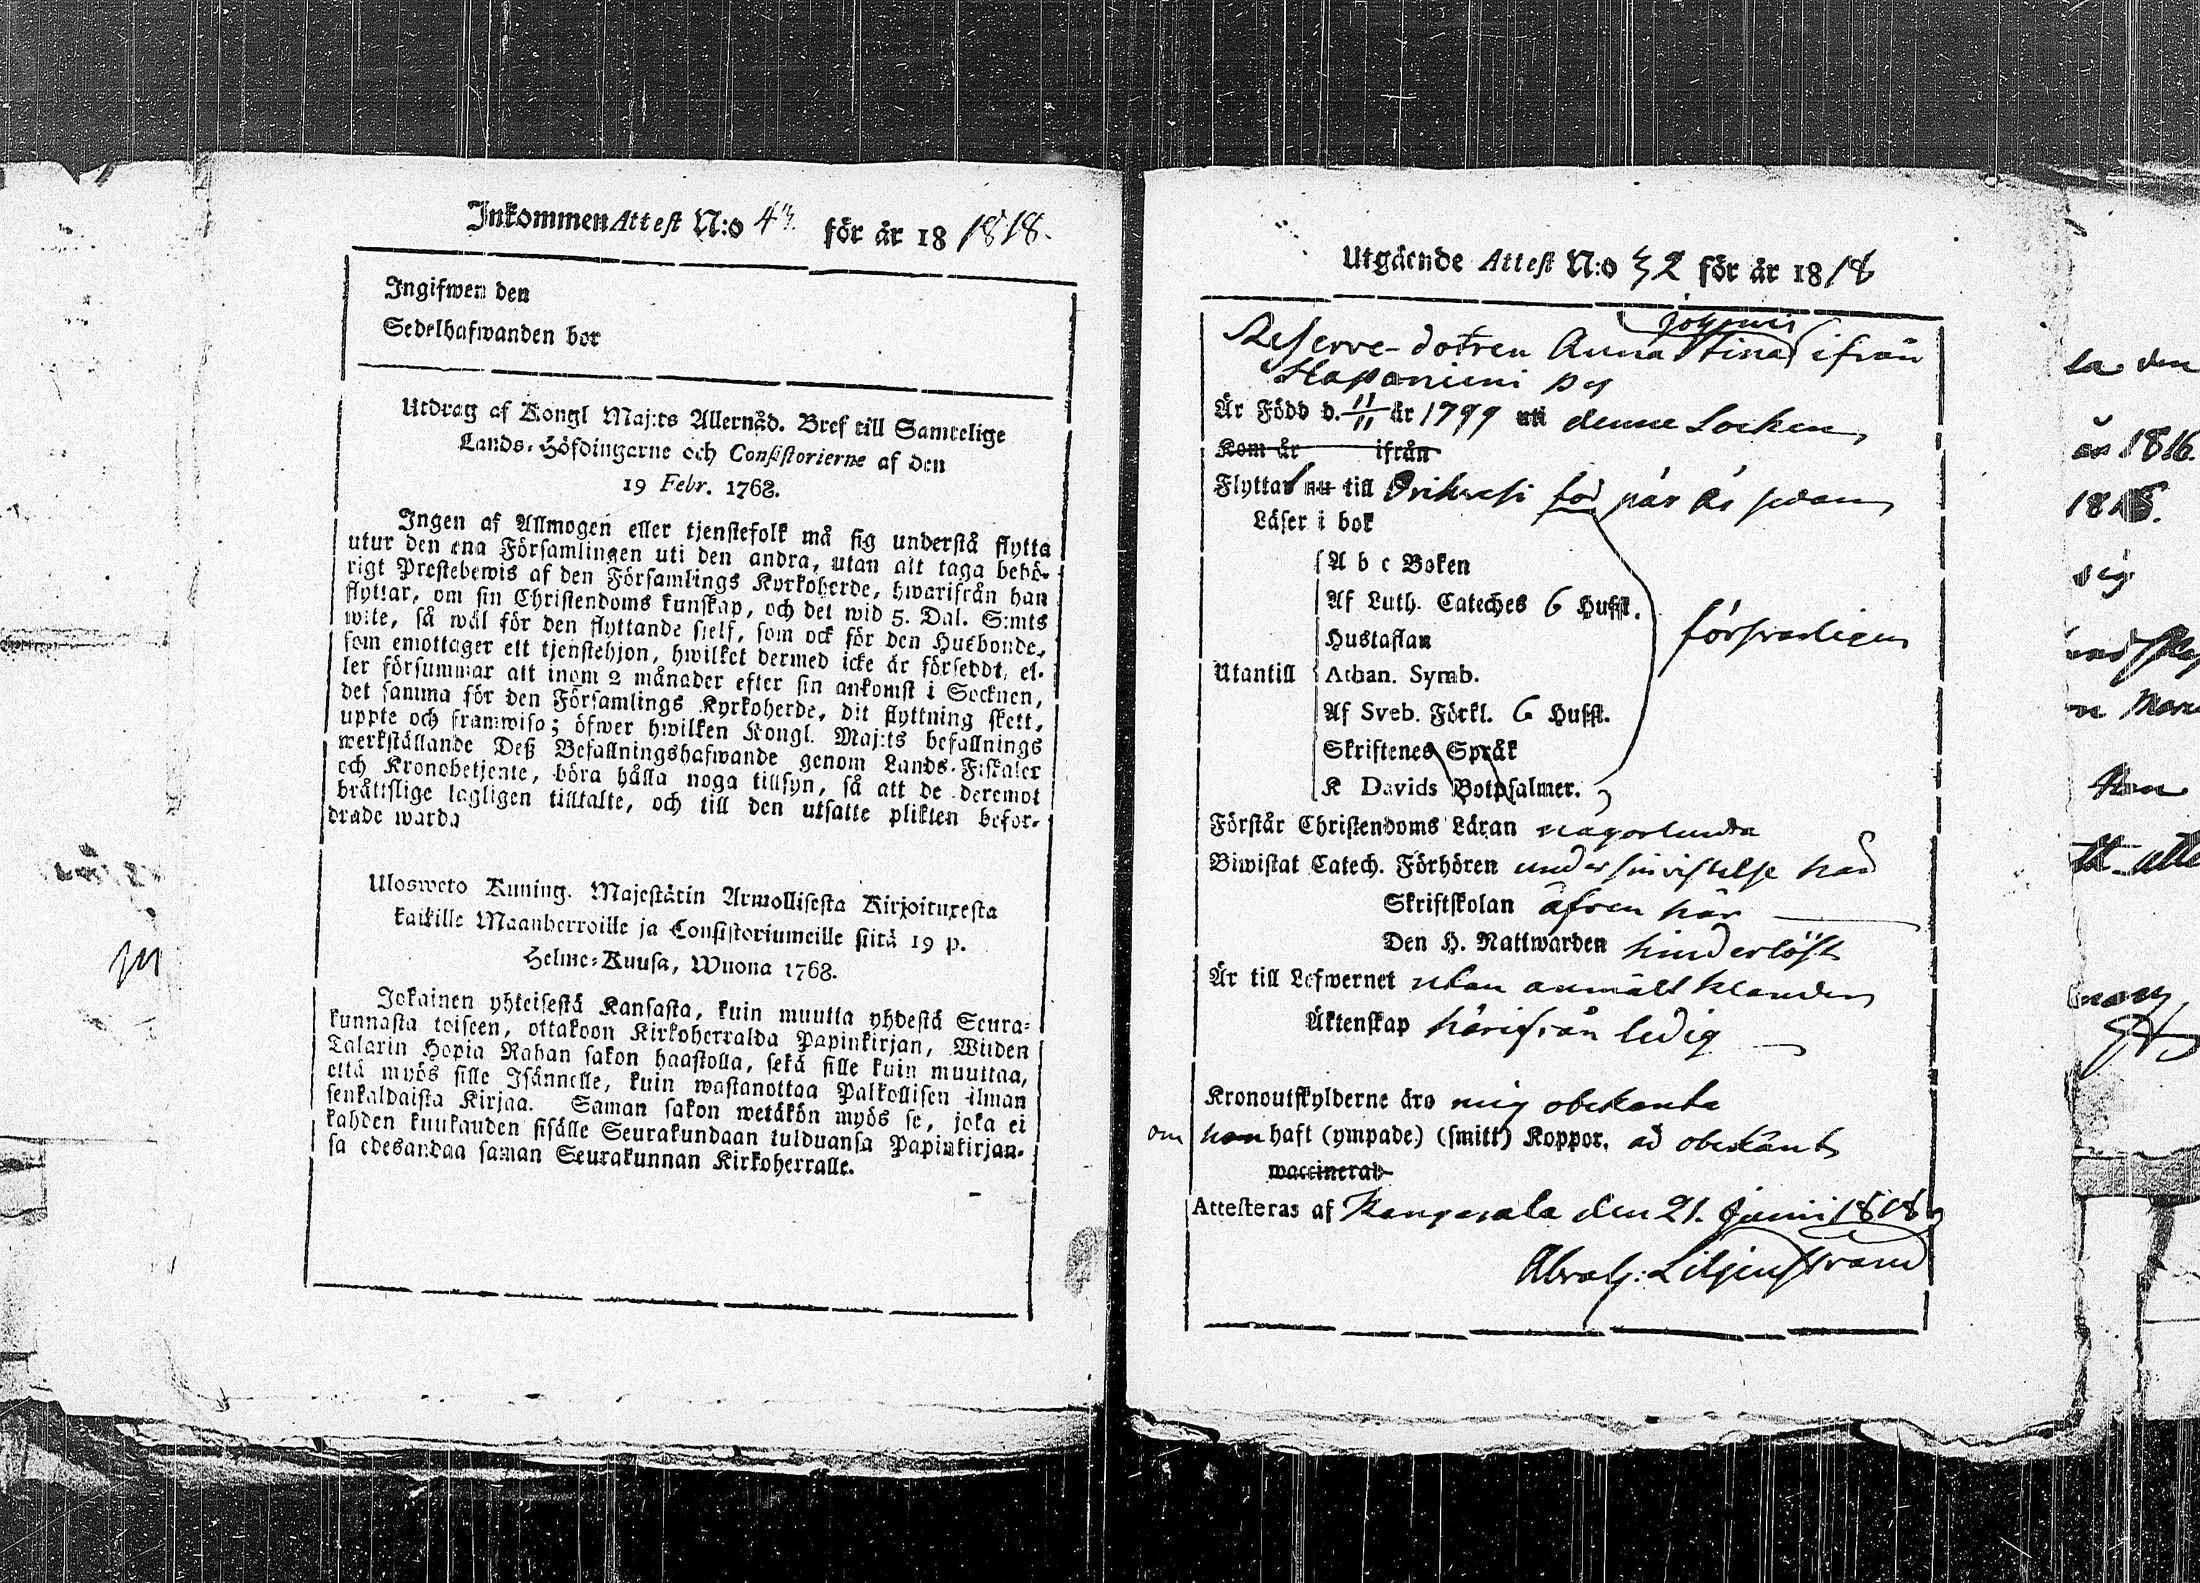 Inkommen Attest N:o 43. för år 18 1818.
Ingifwen den
Sedelhafwanden bor
Utdrag af Kongl Maj:ts Allernåd. Bref till Samtelige
Lands-Höfdingarne och Consistorierne af den
19 Febr. 1768.
Ingen af Allmogen eller tjenstefolk må sig understå flytta
utur den ena Församlingen uti den andra, utan att taga behö-
rigt Prestebewis af den Församlings Kyrkoherde, hwarifrån han
flyttar, om sin Christendoms kunskap, och det wid 5. Dal. S:mts
wite, så wäl för den flyttande sielf, som ock för den Husbonde,
som emottager ett tjenstehjon, hwilket dermed icke är förseddt, el-
ler försummar att inom 2 månader efter sin ankomst i Socknen,
det samma för den Församlings Kyrkoherde, dit flyttning skett,
uppte och framwisa; öfwer hwilken Kongl. Maj:ts befallnings
werkställande Deß Befallningshafwande genom Lands-Fiskaler
och Kronobetjente, böra hålla noga tillsyn, så att de deremot
bråttslige lagligen tilltalte, och till den utsatte plikten befor-
drade warda
Ulosweto Kuning. Majestätin Armollisesta Kirjoituxesta
kaikille Maanherroille ja Consistoriumeille siitä 19 p.
Helme-Kuusa, Wuona 1768.
Jokainen yhteisestä Kansasta, kuin muutta yhdestä Seura-
kunnasta toiseen, ottakoon Kirkoherralda Papinkirjan, Wiiden
Talarin Hopia Rahan sakon haastolla, sekä sille kuin muuttaa,
että myös sille Isännelle, kuin wastanottaa Palkollisen ilman
senkaldaista Kirjaa. Saman sakon wetäkön myös se, joka ei
kahden kuukauden sisälle Seurakundaan tulduansa Papinkirjan-
sa edesandaa saman Seurakunnan Kirkoherralle.
Utgående Attest N:o 32 för år 1818
Johannis
Reserve-dotren Anna Stina ifrån
Haponiemi By
Är Född d. 11/11 år 1799 uti denne Socken
Kom år ifrån
Flyttat nu till Orihvesi för par år sedan
Läser i bok
A b c Boken
Af Luth. Cateches 6 Huffst. försvarligen
Hustaflan
Utantill Athan. Symb.
Af Sveb. Förkl. 6 Huffst.
Skriftenes Språk
K Davids Botpsalmer.
Förstår Christendoms Läran någorlunda
Biwistat Catech. Förhören under sin vistelse här
Skriftskolan äfven här
Den H. Nattwarden hinderlöst
Är till Lefwernet utan anmält klander
Äktenskap härifrån ledig
Kronoutskylderne äro mig obekante
om hon haft (ympade) (smitt) Koppor, är obekänt
waccinerad
Attesteras af Kangasala den 21. Junii 1818
Abrah: Liljenstrand
la den
år 1816.
sig